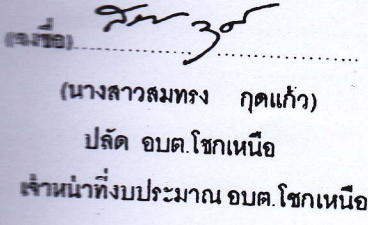 (ลงชื่อ)
(นางสาวสมทรง กุดแก้ว)
ปลัด อบต.โชกเหนือ
เจ้าหน้าที่งบประมาณ อบต.โชกเหนือ